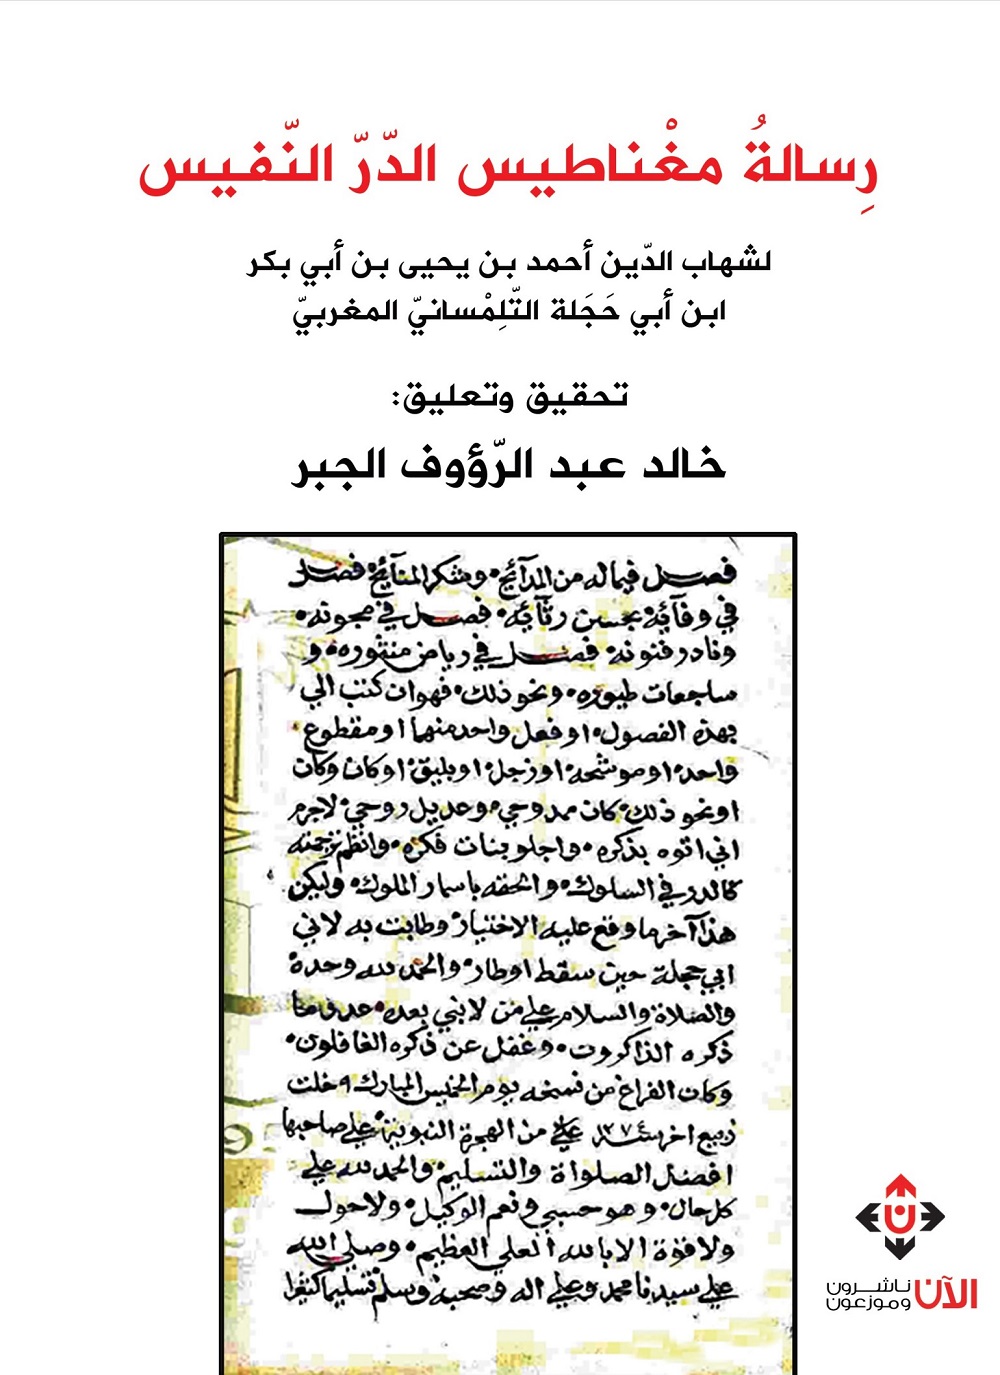 رِسالةُ مغْناطيس الدّرّ النّفيس
لشهاب الدّين أحمد بن يحيى بن أبي بكر
ابن أبي حَجَلة التّلِمْسانيّ المغربيّ
تحقيق وتعليق:
خالد عبد الرّؤوف الجبر
فصل فيماله من المدآئح وشكر المنآيح فصل
في وفآيه بحسن رثآيه فصل في مجونه
ونادر فنونه فصل في رياض منثوره و
ساجعات طيوره ونحو ذلك فهوان كتب الي
بهذه الفصول او فعل واحد منهما او مقطوع
واحد او موشحه او زجل او بليق او كان وكان
او نحو ذلك كان ممدوحي وعديل روحي لاجرم
اني انوه بذكره واجلو بنات فكره وانظم ترجمته
كالدر في السلوك والحقه باسمار الملوك وليكن
هذا آخر ما وقع عليه الاختيار وطابت به لابي
ابي حجلة حين سقط اوطار والحمد لله وحده
والصلاة والسلام علي من لا نبي بعده عدد ما
ذكره الذاكرون وغفل عن ذكره الغافلون
وكان الفراغ من نسخه يوم الخميس المبارك ٩ خلت
ربيع اخر سنة ١٢٧٤ من الهجرة النبوية علي صاحبها
افضل الصلواة والتسليم والحمد لله علي
كل حال وهو حسبي ونعم الوكيل ولا حول
ولا قوة الا بالله العلي العظيم وصلي الله
علي سيدنا محمد وعلي اله وصحبه وسلم تسليما كثيرا
الآن ناشرون
وموزعون